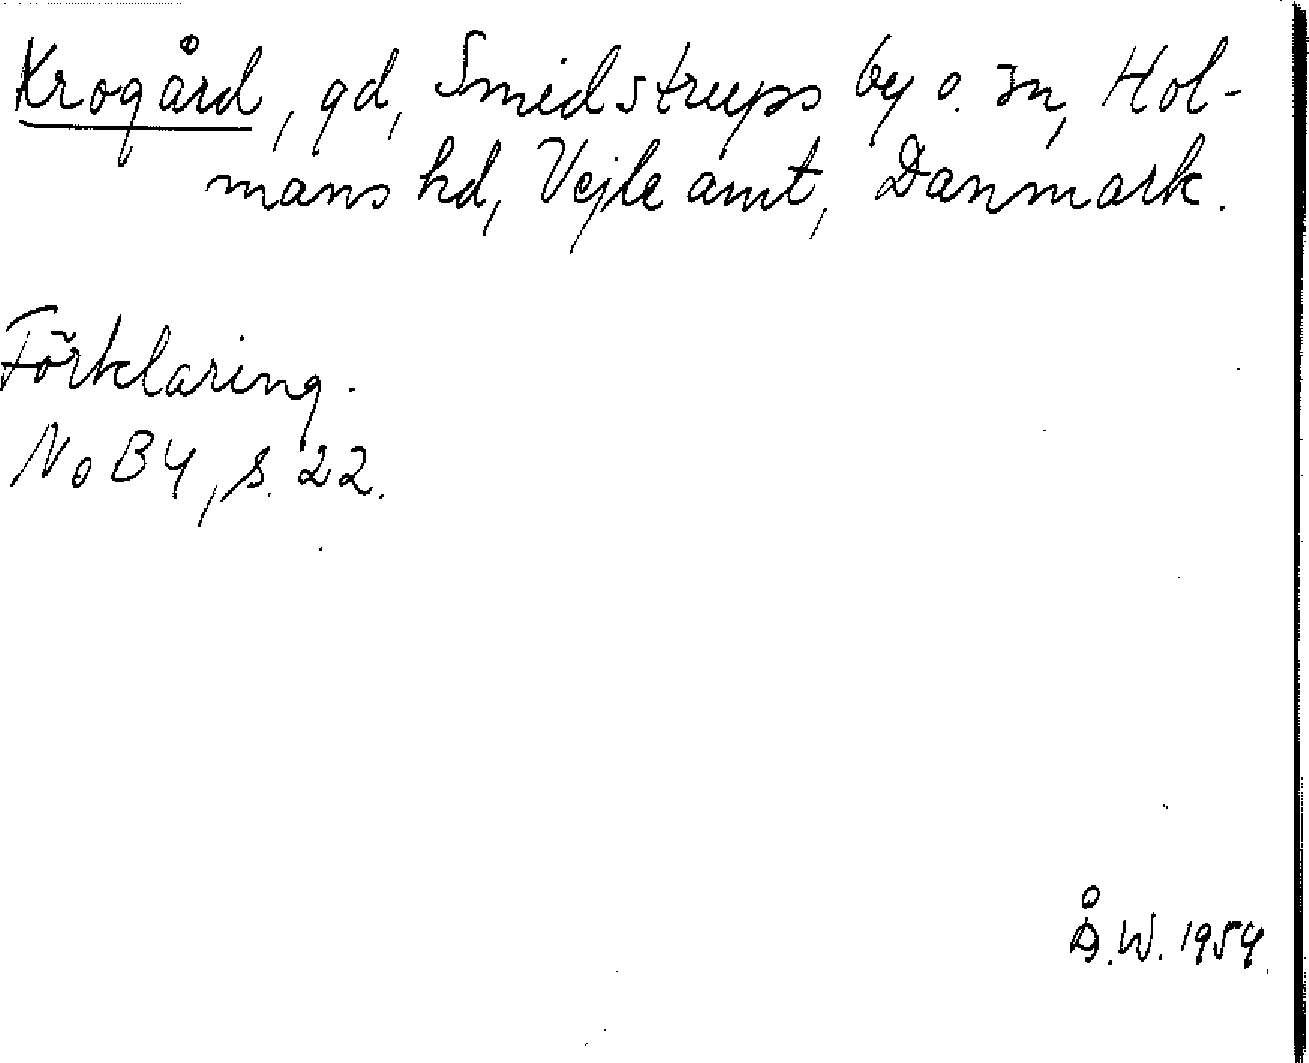 Krogård, gd, Smidstrups by o. sn, Hol-
mans hd, Vejle amt, Danmark.
Förklaring.
No B4, s. 22.
Å.W. 1954.